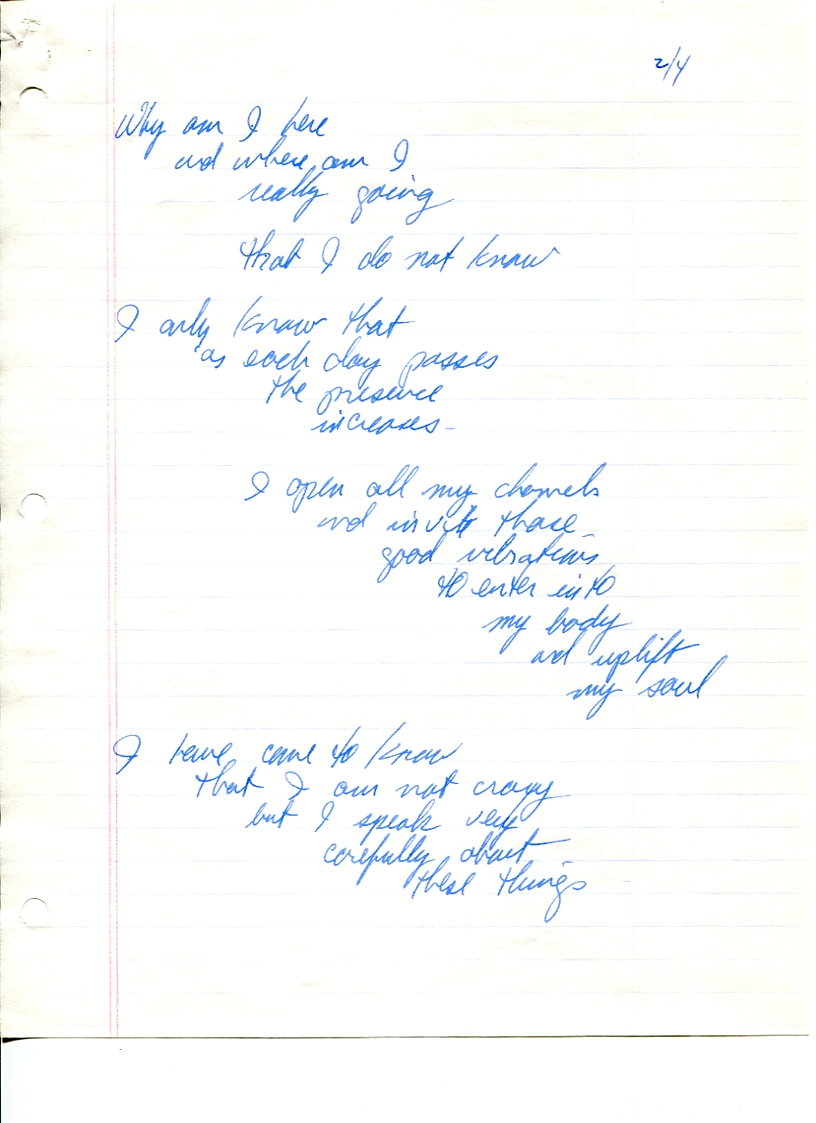 2/4
Why am I here
and where am I
really going
that I do not know
I only know that
as each day passes
the presence
increases -
I open all my channels
and invite those
good vibrations
to enter into
my body
and uplift
my soul
I have come to know
that I am not crazy
but I speak very
carefully about
these things